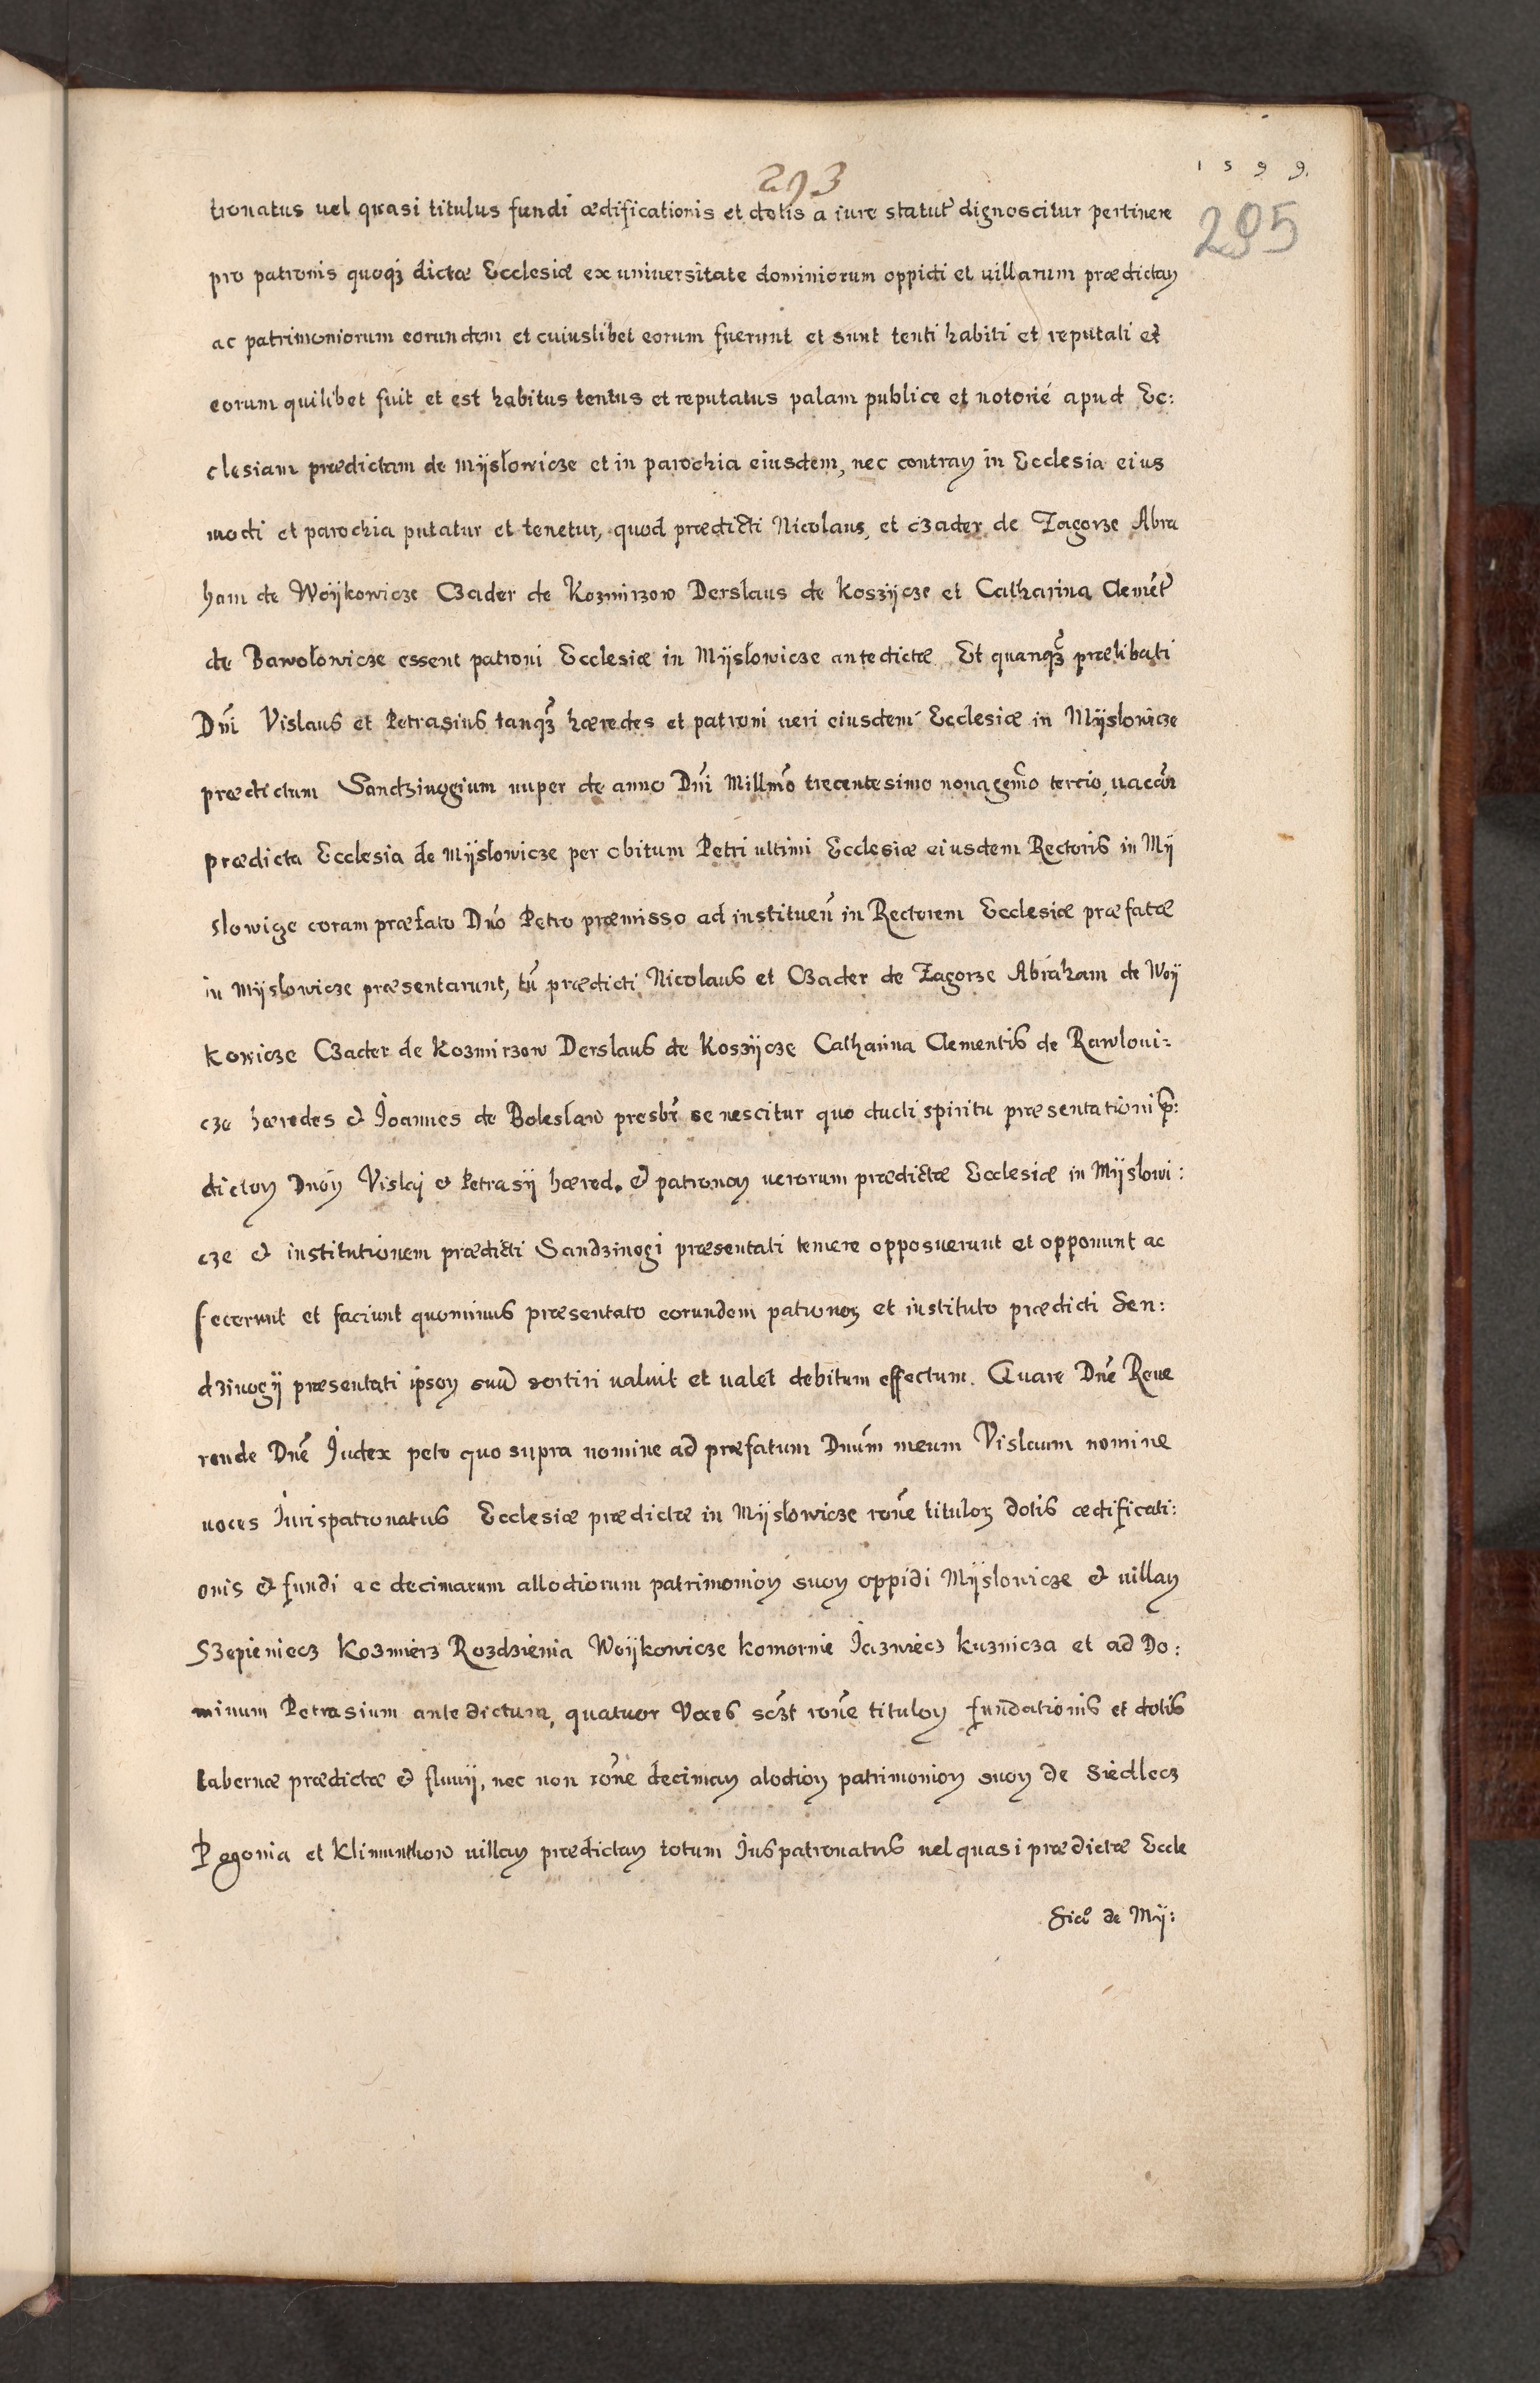 293
1599.
295
tronatus uel quasi titulus fundi ædificationis et dotis a iure statut dignoscitur pertinere
pro patronis quoqȝ dictæ Ecclesiæ ex uniuersitate dominiorum oppidi et uillarum prædictaꝝ
ac patrimoniorum eorundem et cuiuslibet eorum fuerunt et sunt tenti habiti et reputati et
eorum quilibet fuit et est habitus tentus et reputatus palam publice et notorié apud Ec:
clesiam prædictam de Mÿsłowicze et in parochia eiusdem, nec contraꝝ in Ecclesia eius
modi et parochia putatur et tenetur, quod prædicti Nicolaus, et Czader de Zagorze Abra
ham de Woÿkowicze Czader de Kozmirzow Derslaus de Koszÿcze et Catharina Clemẽt
de Bawołowicze essent patroni Ecclesiæ in Mÿsłowicze antedictæ Et quanqȝ prælibati
Dñi Vislaus et Petrasius tanqȝ hæredes et patroni ueri eiusdem Ecclesiæ in Mÿslowicze
prædictum Sandziuogium nuper de anno Dñi Millmo trecentesimo nonagemo tercio, uacañ
prædicta Ecclesia de Mÿsłowicze per obitum Petri ultimi Ecclesiæ eiusdem Rectoris in Mÿ
slowicze coram præfato Dño Petro præmisso ad instituen in Rectorem Ecclesiæ præfatæ
in Mÿslowicze præsentarunt, tñ prædicti Nicolaus et Czader de Zagorze Abraham de Woÿ
kowicze Czader de Kozmirzow Derslaus de Koszÿcze Catharina Clementis de Rawloui:
cze hæredes & Joannes de Bolesław presbr se nescitur quo ducti spiritu præsentationi p:
dictoꝝ Dnoꝝ Vislai & Petrasÿ hæred. & patronoꝝ uerorum prædictæ Ecclesiæ in Mÿslowi:
cze & institutionem prædicti Sandziuogi præsentati temere opposuerunt et opponunt ac
fecerunt et faciunt quominus præsentato eorundem patronoꝝ et instituto prædicti Sen:
dziuogÿ præsentati ipsoꝝ suũ sortiri ualuit et ualet debitum effectum. Quare Dñe Reue
rende Dñe Judex peto quo supra nomine ad præfatum Dnum meum Vislaum nomine
uoces Jurispatronatus Ecclesiæ prædictæ in Mÿsłowicze rone tituloꝝ dotis ædificati:
onis & fundi ac decimarum allodiorum patrimonioꝝ suoꝝ oppidi Mÿslowicze & uillaꝝ
Szepieniecz Kozmierz Rozdzienia Woÿkowicze komornie Jazwiecz kuznicza et ad Do:
minum Petrasium antedictum, quatuor Voces sczt rone tituloꝝ fundationis et dotis
tabernæ prædictæ & fluuÿ, nec non rone decimaꝝ alodioꝝ patrimonioꝝ suoꝝ de Siedlecz
Pogonia et Klimunthow uillaꝝ prædictaꝝ totum Juspatronatus uel quasi prædictæ Eccle
siæ de Mÿ: